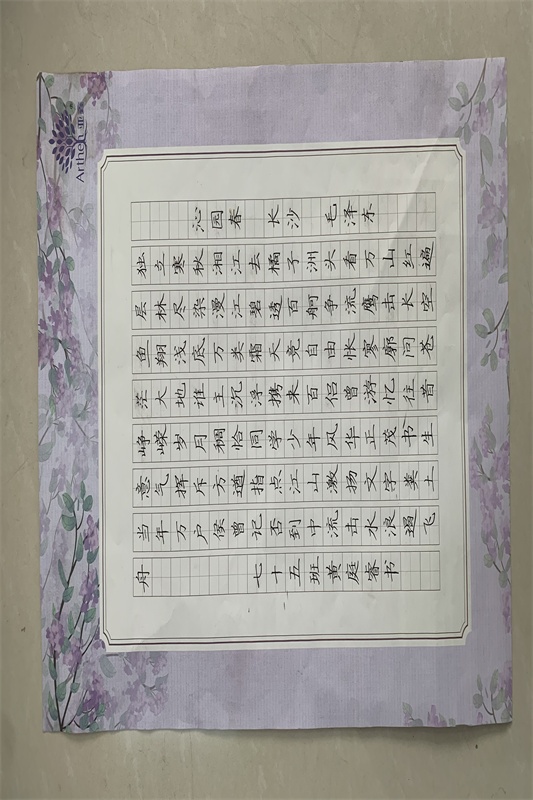 沁园春 长沙 毛泽东
独立寒秋湘江去橘子洲头看万山红遍
层林尽染漫江碧透百舸争流鹰击长空
鱼翔浅底万类霜天竞自由怅寥廓问苍
茫大地谁主沉浮携来百侣曾游忆往昔
峥嵘岁月稠恰同学少年风华正茂书生
意气挥斥方遒指点江山激扬文字粪土
当年万户侯曾记否到中流击水浪遏飞
舟 七十五班黄庭睿书